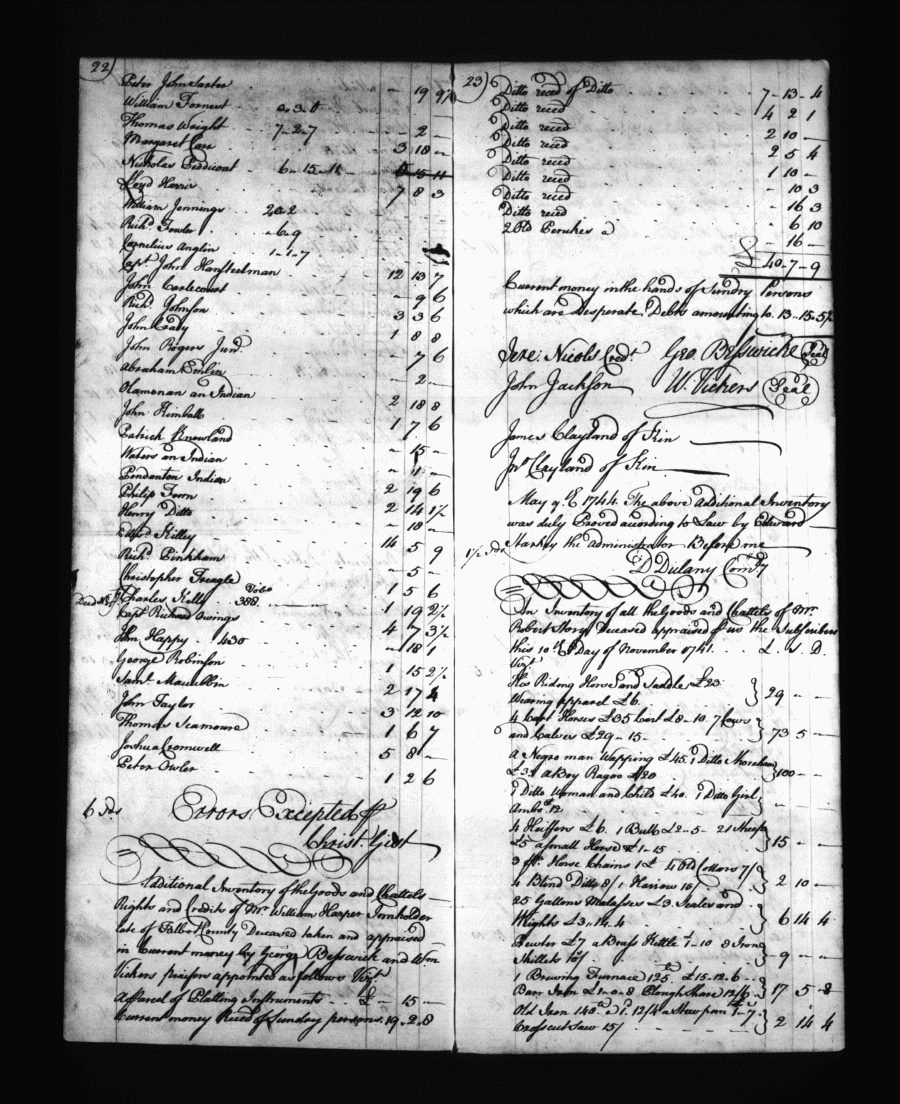 22)
Peter John
William Forrest
Thomas Wright 7-2-7 - 2 -
Margaret 3 18 -
Nicholas 6-15-11
Lloyd Harris 7 8 3
William Jennings
Richd. Fowler . -6-9
Cornelius Anglin 1-1-7
Capt. John 12 13 7
John - 9 6
Richd. Johnson 3 3 6
John Cady 1 8 8
John Rogers Junr. - 7 6
Abraham Emlin - 2 -
an Indian 2 18 8
John Kimball 1 7 6
Patrick Knowland - 15 -
Waters an Indian - 1 -
Indian 2 19 6
Philip Fenn 2 14 1½
Henry Ditto - 18 -
Edwd. Killey 14 5 9
Richd. Pinkham - 5 -
Christopher 1 5 6
Charles Kelly 388 1 19 2½
Capt. Richard Owings 4 7 3½
John Happy . 430 - 18 1
George Robinson 1 15 2½
Saml. 2 17 4
John Taylor 3 12 10
Thomas Seamour 1 6 7
Joshua Cromwell 5 8 -
Peter Owler 1 2 6
6 Sds
Errors Excepted
Christ. Gist
Additional Inventory of the Goods and Chattels
Rights and Credits of Mr. William Harper Ironholder
late of Talbot County Deceased taken and appraised
in Current money by George Besswick and Wm
Vickers praisers appointed as follows Vizt.
A Parcel of Plating Instruments .. £ - 15 -
Current money Reced of Sunday persons. 19.2.8
23)
Ditto reced of Ditto 7-13-4
Ditto reced 4 2 1
Ditto reced 2 10 -
Ditto reced 2 5 4
Ditto reced 1 10 -
Ditto reced - 10 3
Ditto reced - 16 3
Ditto reced - 6 10
2 Old Perukes a - 16 -
£ 40-7-9
Current money in the hands of Sundry Persons
which are Desperate Debts amounting to 13-15-5½
Jere: Nicols Credr. Geo. Besswicke Seal
John Jackson W. Vickers Seal
James Clayland of Kin
Jno Clayland of Kin
May 9th 1744 The above Additional Inventory
was duly Proved according to Law by Edward
Starkey the Administrator Before me
D Dulany Comry
An Inventory of all the Goods and Chattels of Mr.
Robert Story Deceased appraised by us the Subscribers
this 10th Day of November 1741 . . £. S. D.
Vizt.
His Riding Horse and Saddle £23
Wearing apparel £6. } 29 - -
4 Cart Horses £35 Cart £8-10. 7 Cows
and Calves £29-15- } 73 5 -
A Negro man Wapping £45. 1 Ditto
£35 a Boy Ragoo £20 } 100 - -
1 Ditto Woman and Child £40. 1 Ditto Girl
12
4 Heiffers £6. 1 Bull £2-5- 21 Sheep
£5 a small Horse £1-15 } 15 - -
3 pr. Horse Chains 1£ 4 Old Collars 7/
4 Blind Ditto 8/ 1 Harrow 10/ } 2 10 -
25 Gallons Molasses £3 Scales and
Weights £3,,14.4 } 6 14 4
Pewter £7 a Brass Kettle 1-10 3 Iron
Skillets 10/ } 9 - -
1 Brewing Furnace 125 £15-12-6
Barr Iron £1-0-8 Plough Share 12/6 } 17 5 8
Old Iron 140 a 1. 12/4 a Stew pan £1-7
Crosscut Saw 15/ } 2 14 4